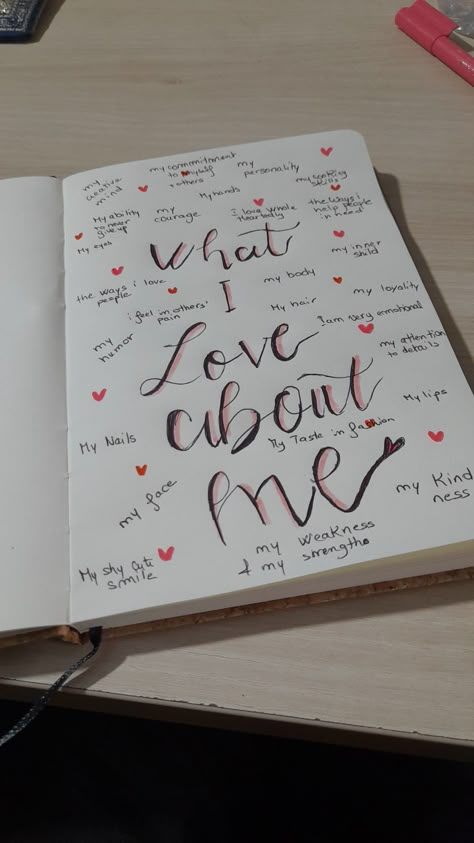 my creative mind
my commitment to myself & others
my personality
my cooking skills
My ability to never give up
my courage
My hands
I love whole heartedly
the ways I help people in need
My eyes
What
my inner child
the ways i love people
I
my body
my loyality
i feel in others' pain
My hair
I am very emotional
my humor
Love
my attention to details
about
My lips
My Nails
My Taste in fashion
me
my face
my Kind ness
my Weakness & my strengths
My shy cute smile